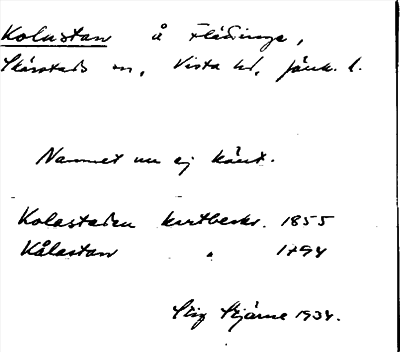 Kolustan å Flättinge,
Skärstads sn, Vista hd, Jönk. l.
Namnet nu ej känt.
Kolastaden kartbeskr. 1855
Kålastan " 1794
Stig Stjärne 1934.